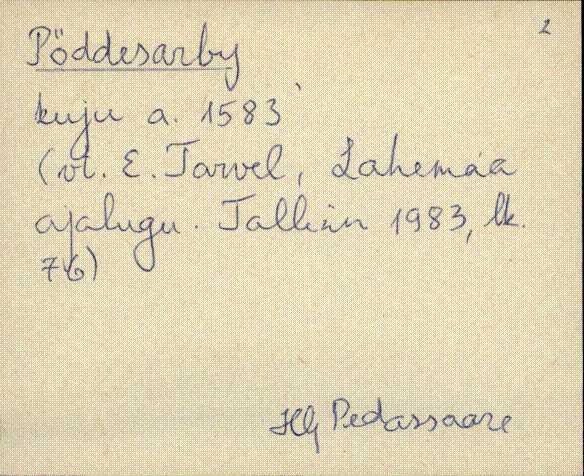 2
Pöddesarby
kuju a. 1583
(vt. E. Tarvel, Lahemaa
ajalugu. Tallinn 1983, lk.
76)
Hlj Pedassaare